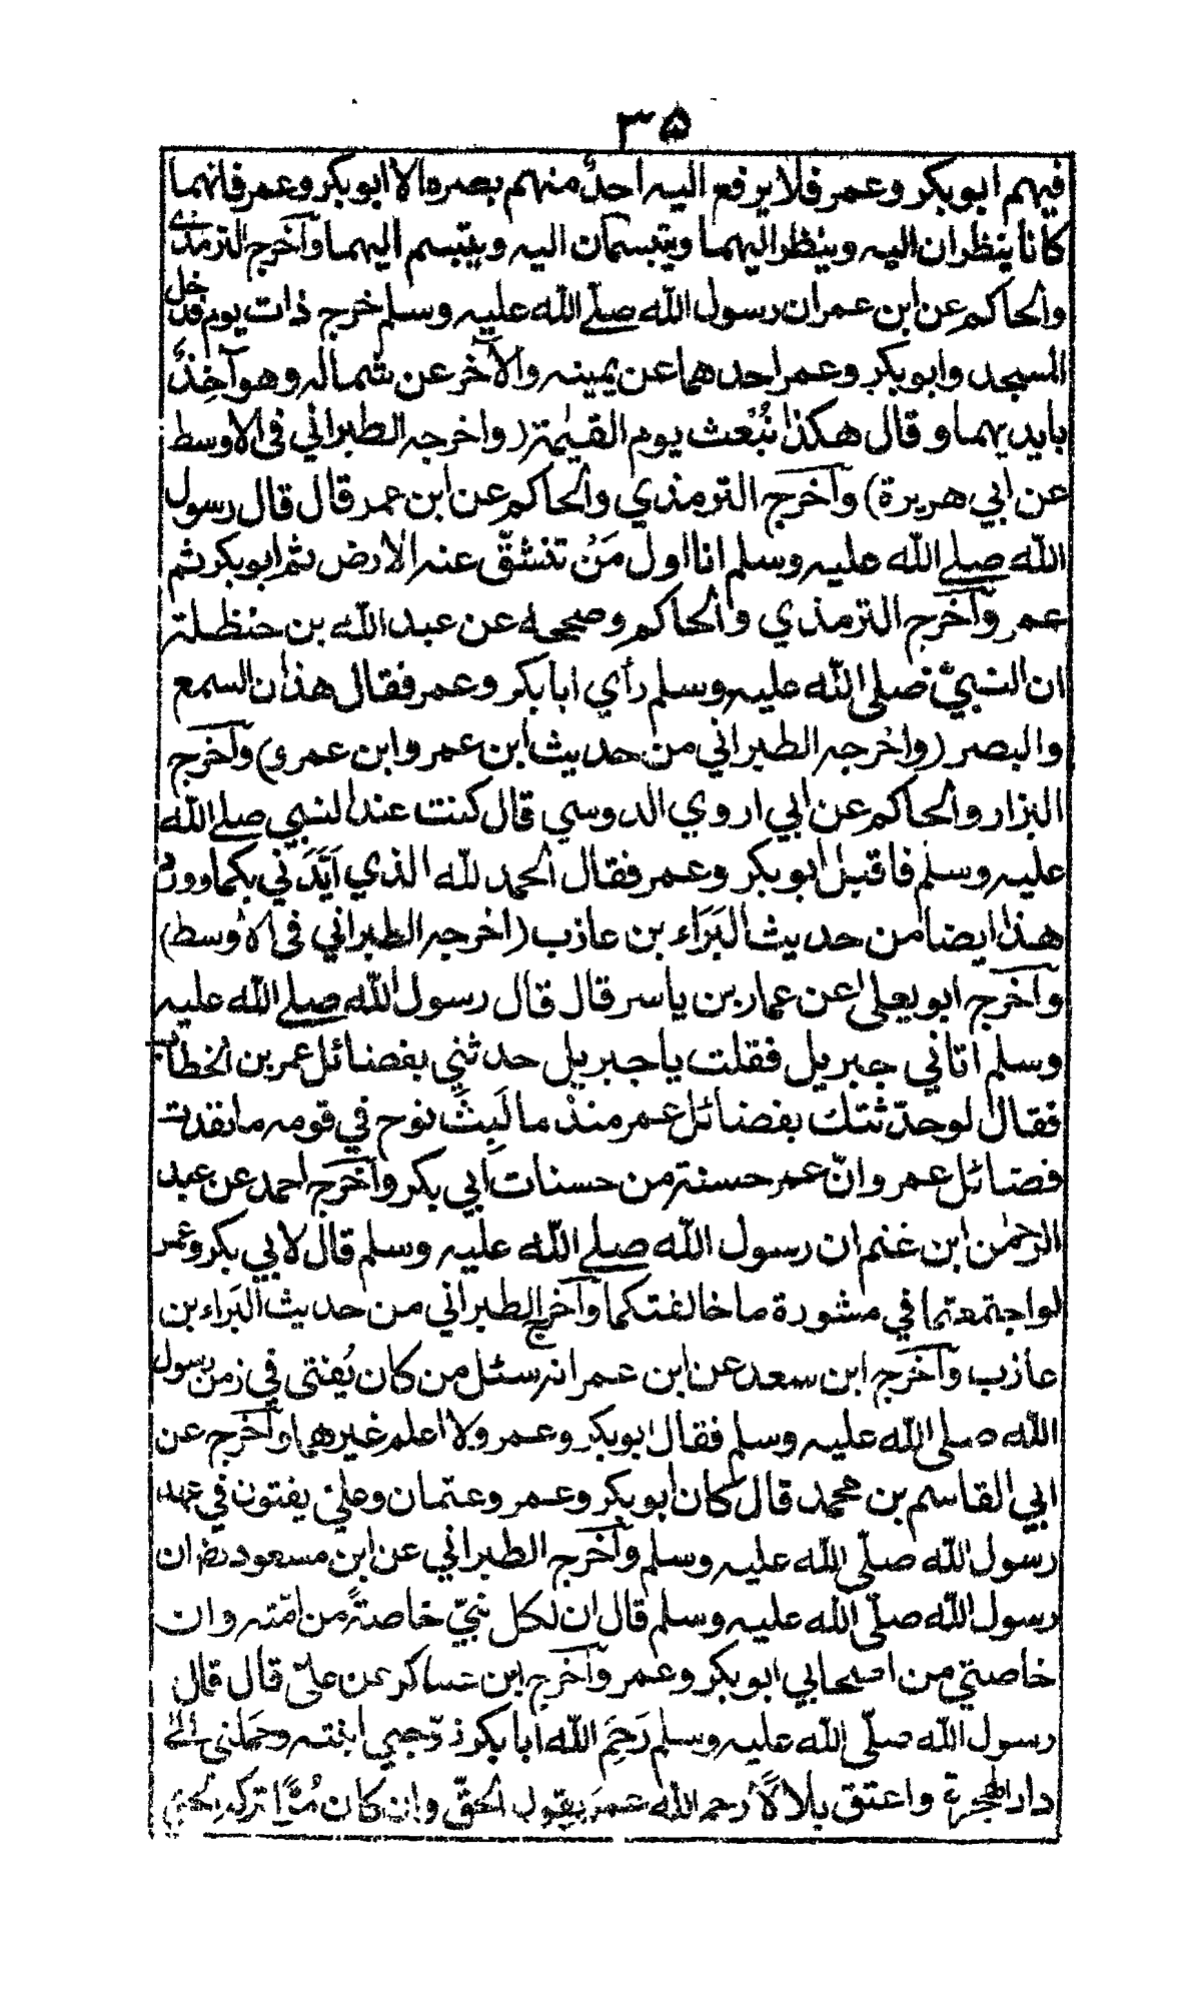 ٣۵
فيهم ابوبكر وعمر فلا يرفع اليه احدٌ منهم بصره الا ابوبكر وعمر فانهما
كانا ينظران اليه وينظر اليهما ويتبسمان اليه ويتبسم اليهما وآخرج الترمذي
والحاكم عن ابن عمران رسول الله صلے الله عليه وسلم خرج ذات يوم فدخل
المسجد وابوبكر وعمر احدهما عن يمينه والآخر عن شماله وهو آخِذٌ
بايديهما وقال هكذا نُبْعَث يوم القيٰمة (واخرجه الطبراني فى الاوسط
عن ابي هريرة) وآخرج الترمذي والحاكم عن ابن عمر قال قال رسول
الله صلے الله عليه وسلم انا اول مَنْ تنشقّ عنه الارض ثم ابوبكر ثم
عمر وآخرج الترمذي والحاكم وصححه عن عبد الله بن حنظلة
ان النبيّ صلى الله عليه وسلم رأي ابابكر وعمر فقال هذان السمع
والبصر (واخرجه الطبراني من حديث ابن عمر وابن عمرو) وآخرج
البزار والحاكم عن ابي اروي الدوسي قال كنت عند النبي صلے الله
عليه وسلم فاقبل ابوبكر وعمر فقال الحمد لله الذي اَيَّدَني بكما وورد
هذا ايضا من حديث البَرَاء بن عازب (اخرجه الطبراني فى الاوسط)
وآخرج ابو يعلى عن عمار بن ياسر قال قال رسول الله صلے الله عليه
وسلم اتاني جبريل فقلت يا جبريل حدثني بفضائل عمر بن الخطاب
فقال لو حدّثتك بفضائل عمر منذ ما لَبِثَ نوح في قومه ما نفدت
فضائل عمر وانّ عمر حسنة من حسنات ابي بكر وآخرج احمد عن عبد
الرحمٰن ابن غنم ان رسول الله صلے الله عليه وسلم قال لابي بكر وعمر
لو اجتمعتما في مشورة ما خالفتكما وآخرج الطبراني من حديث البَراء بن
عازب وآخرج ابن سعد عن ابن عمر انه سئل من كان يُفتى في زمن رسول
الله صلى الله عليه وسلم فقال ابوبكر وعمر ولا اعلم غيرهما وآخرج عن
ابي القاسم بن محمد قال كان ابوبكر وعمر وعثمان وعليّ يفتون في عهد
رسول الله صلّى الله عليه وسلم وآخرج الطبراني عن ابن مسعود رضـ ان
رسول الله صلّى الله عليه وسلم قال ان لكل نبيّ خاصةً من امّته وان
خاصتي من اصحابي ابوبكر وعمر وآخرج ابن عساكر عن عليّ قال قال
رسول الله صلّى الله عليه وسلم رَحِمَ الله ابابكر زوّجني ابنته وحملني الى
دار الهجرة واعتق بلالاً رحم الله عمرَ يقول الحقّ وان كان مُرًّا تركه الحق